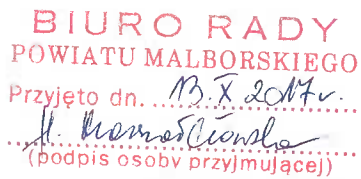 BIURO RADY
POWIATU MALBORSKIEGO
Przyjęto dn. 13. X 2017r.
(podpis osoby przyjmującej)